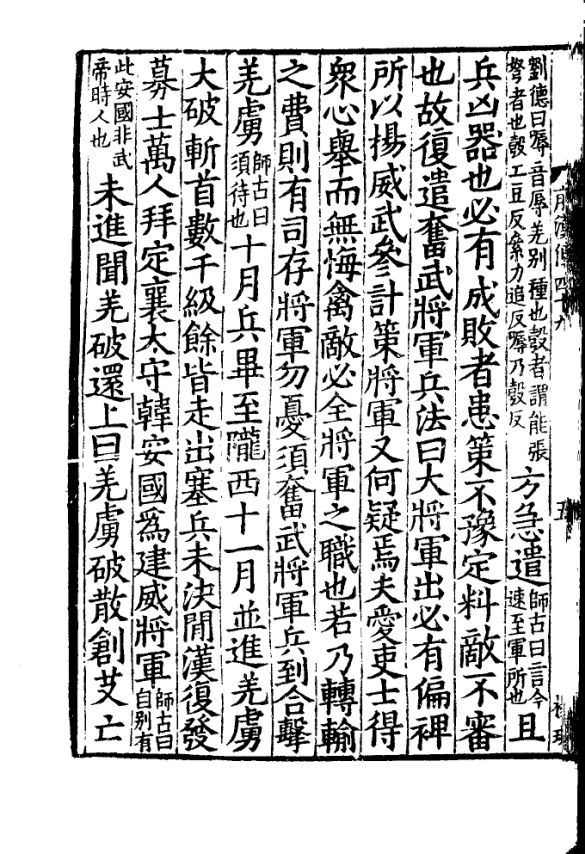 劉德曰䎡音䎡羌別種也彀者謂能張
弩者也彀工豆反絫力追反䎡乃彀反
方急遣
師古曰言今
速至軍所也
且
兵凶器也必有成敗者患策不豫定料敵不審
也故復遣奮武將軍兵法曰大將軍出必有偏裨
所以揚威武參計策將軍又何疑焉夫愛吏士得
衆心舉而無悔禽敵必全將軍之職也若乃轉輸
之費則有司存將軍勿憂須奮武將軍兵到合擊
羌虜
師古曰
須待也
十月兵畢至隴西十一月並進羌虜
大破斬首數千級餘皆走出塞兵未決閒漢復發
募士萬人拜定襄太守韓安國爲建威將軍
師古曰
自別有
此安國非武
帝時人也
未進聞羌破還上曰羌虜破散創艾亡
五